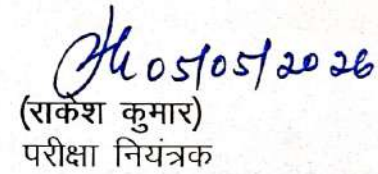 05/05/2026
(राकेश कुमार)
परीक्षा नियंत्रक